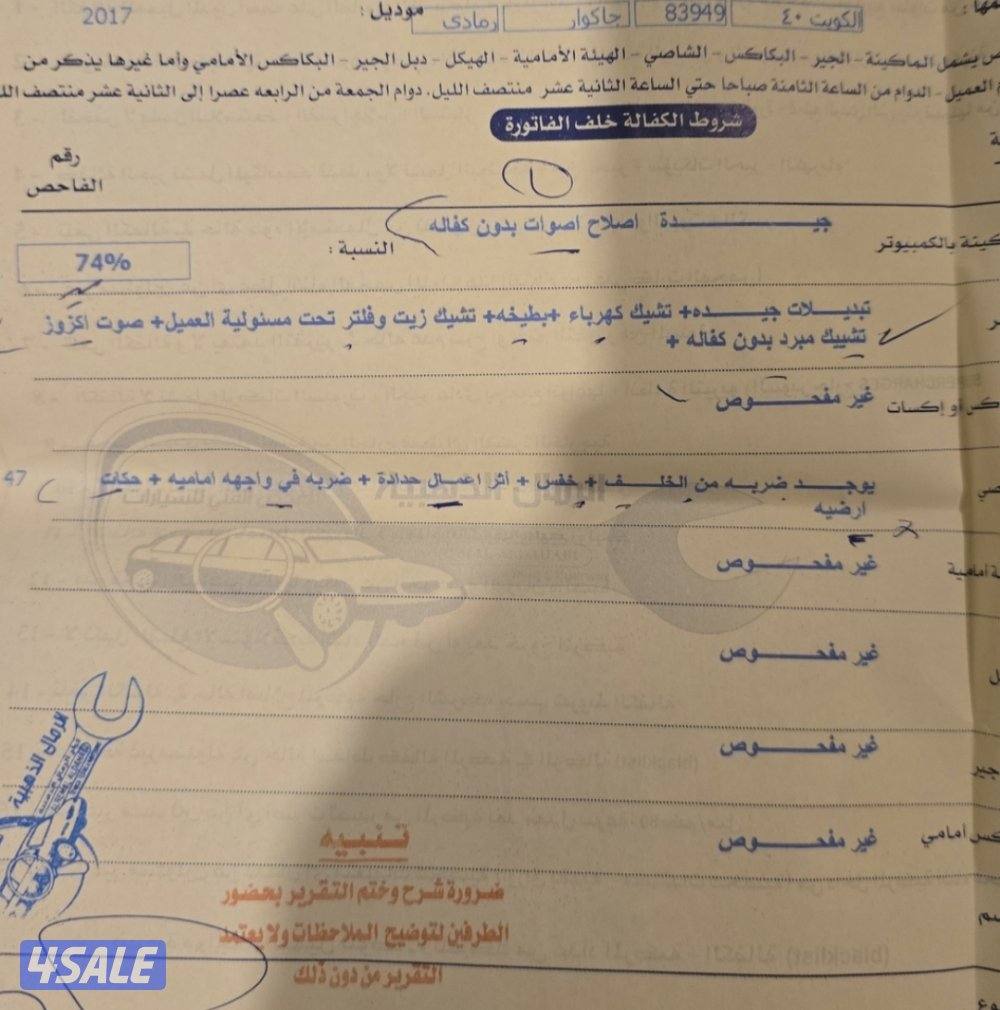 الكويت ٤٠ 83949 جاكوار رمادي موديل : 2017
يشمل الماكينة - الجير - البكاكس - الشاصي - الهيئة الأمامية - الهيكل - دبل الجير - البكاكس الأمامي وأما غيرها يذكر من
العميل - الدوام من الساعة الثامنة صباحا حتي الساعة الثانية عشر منتصف الليل. دوام الجمعة من الرابعه عصرا إلى الثانية عشر منتصف
شروط الكفالة خلف الفاتورة
رقم
الفاحص
1
بالكمبيوتر جيــــدة اصلاح اصوات بدون كفاله النسبة : 74%
تبديــلات جيـــده+ تشيك كهرباء +بطيخه+ تشيك زيت وفلتر تحت مسئولية العميل+ صوت اكزوز
تشييك مبرد بدون كفاله +
أو إكسات غير مفحـــوص
يوجــد ضربه من الخلــف + خفس + أثر اعمـال حدادة + ضربه في واجهه اماميه + حكات 47
ارضيه
أمامية غير مفحـــوص
غير مفحـــوص
جير غير مفحـــوص
أمامي غير مفحـــوص
تنبيه
ضرورة شرح وختم التقرير بحضور
الطرفين لتوضيح الملاحظات ولا يعتمد
التقرير من دون ذلك
الرمال الذهبية
4SALE